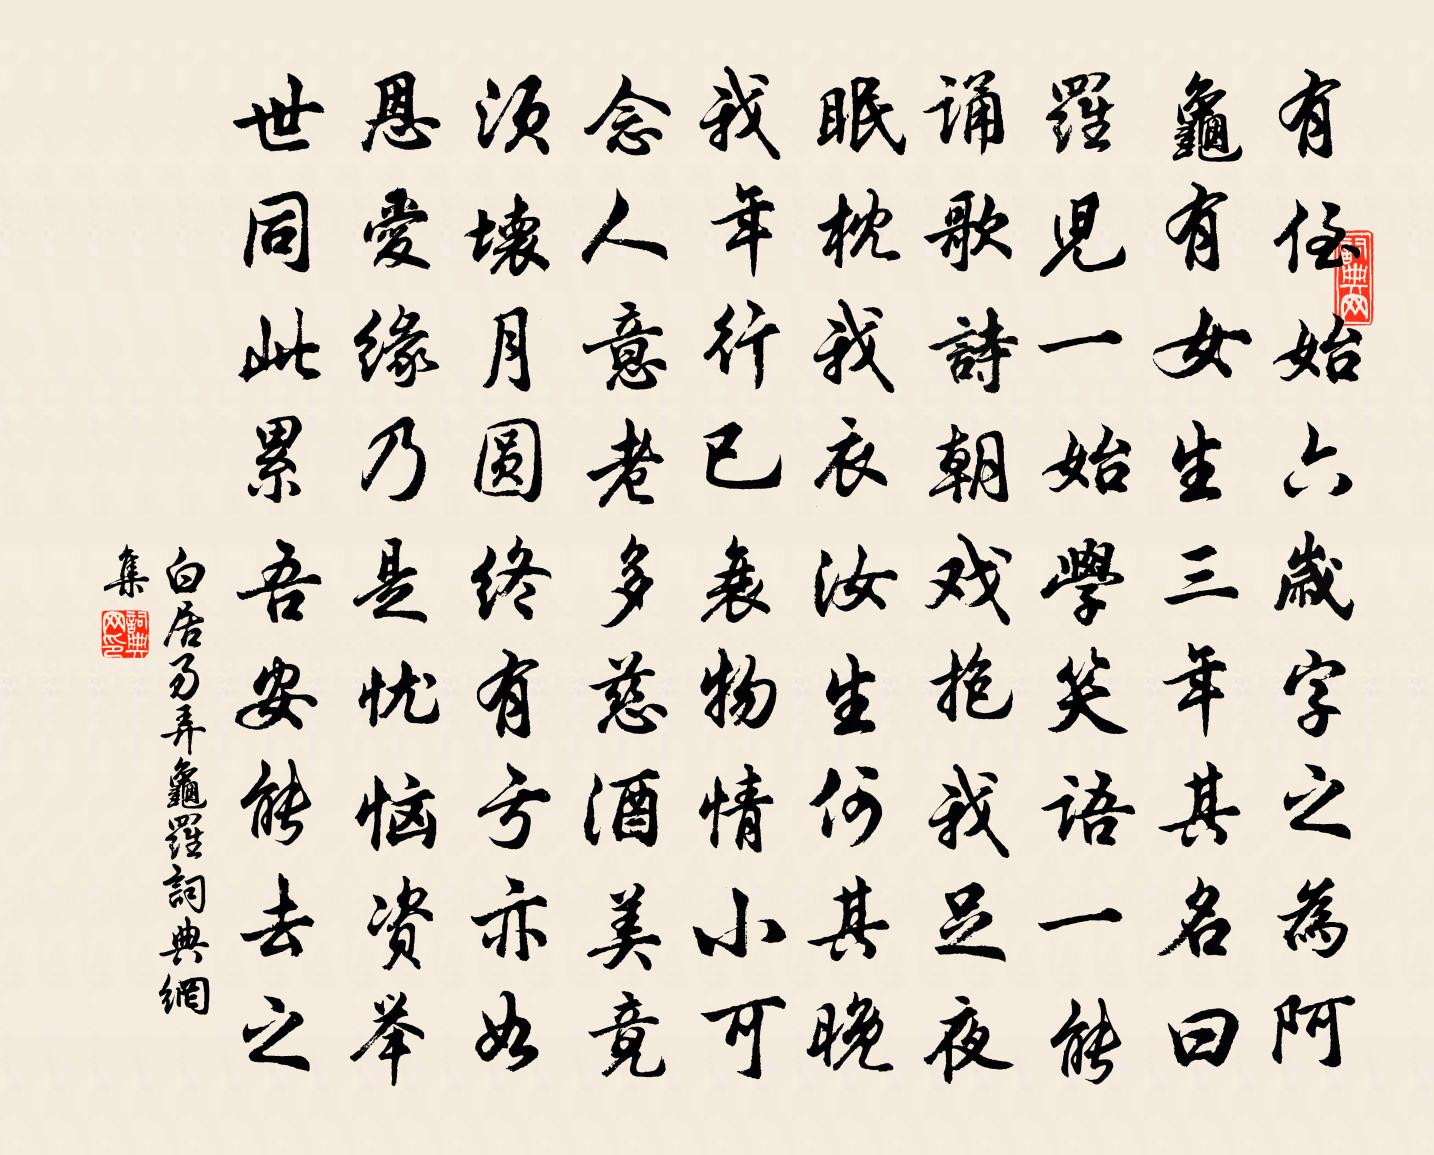 有侄始六歲字之為阿
龜有女生三年其名曰
羅兒一始學笑语一能
诵歌詩朝戏抱我足夜
眠枕我衣汝生何其晚
我年行已衰物情小可
念人意老多慈酒美竟
须壞月圆终有亏亦如
恩愛缘乃是忧恼资举
世同此累吾安能去之
白居易弄龜羅詞典網
集
詞典网
詞典网印